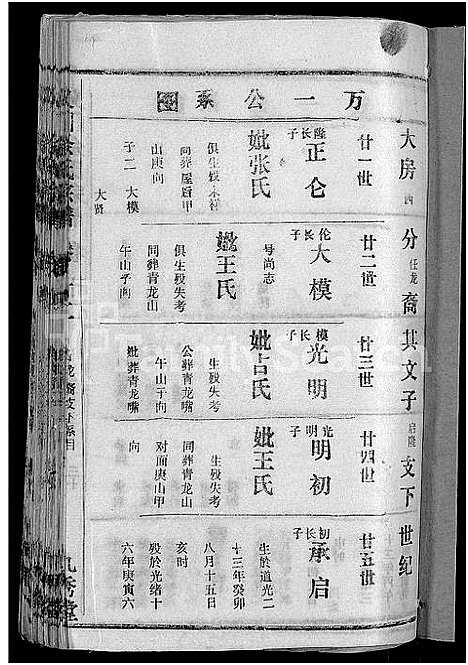 万一公系图
大房 四 分 任龙 裔 其文子 启隆 支下世纪
廿一世
隆长子
正仑
妣张氏
俱生殁未祥
同葬屋后甲
山庚向
子二 大模
大贤
廿二世
伦长子
大模
号尚志
妣王氏
俱生殁失考
同葬青龙山
午山子向
廿三世
模长子
光明
妣占氏
生殁失考
公葬青龙嘴
午山子向
妣葬青龙嘴
廿四世
光明子
明初
妣王氏
生殁失考
同葬青龙山
对面庚山甲
向
廿五世
初长子
承启
生於道光二
十三年癸卯
八月十五日
亥时
殁於光绪十
六年庚寅六